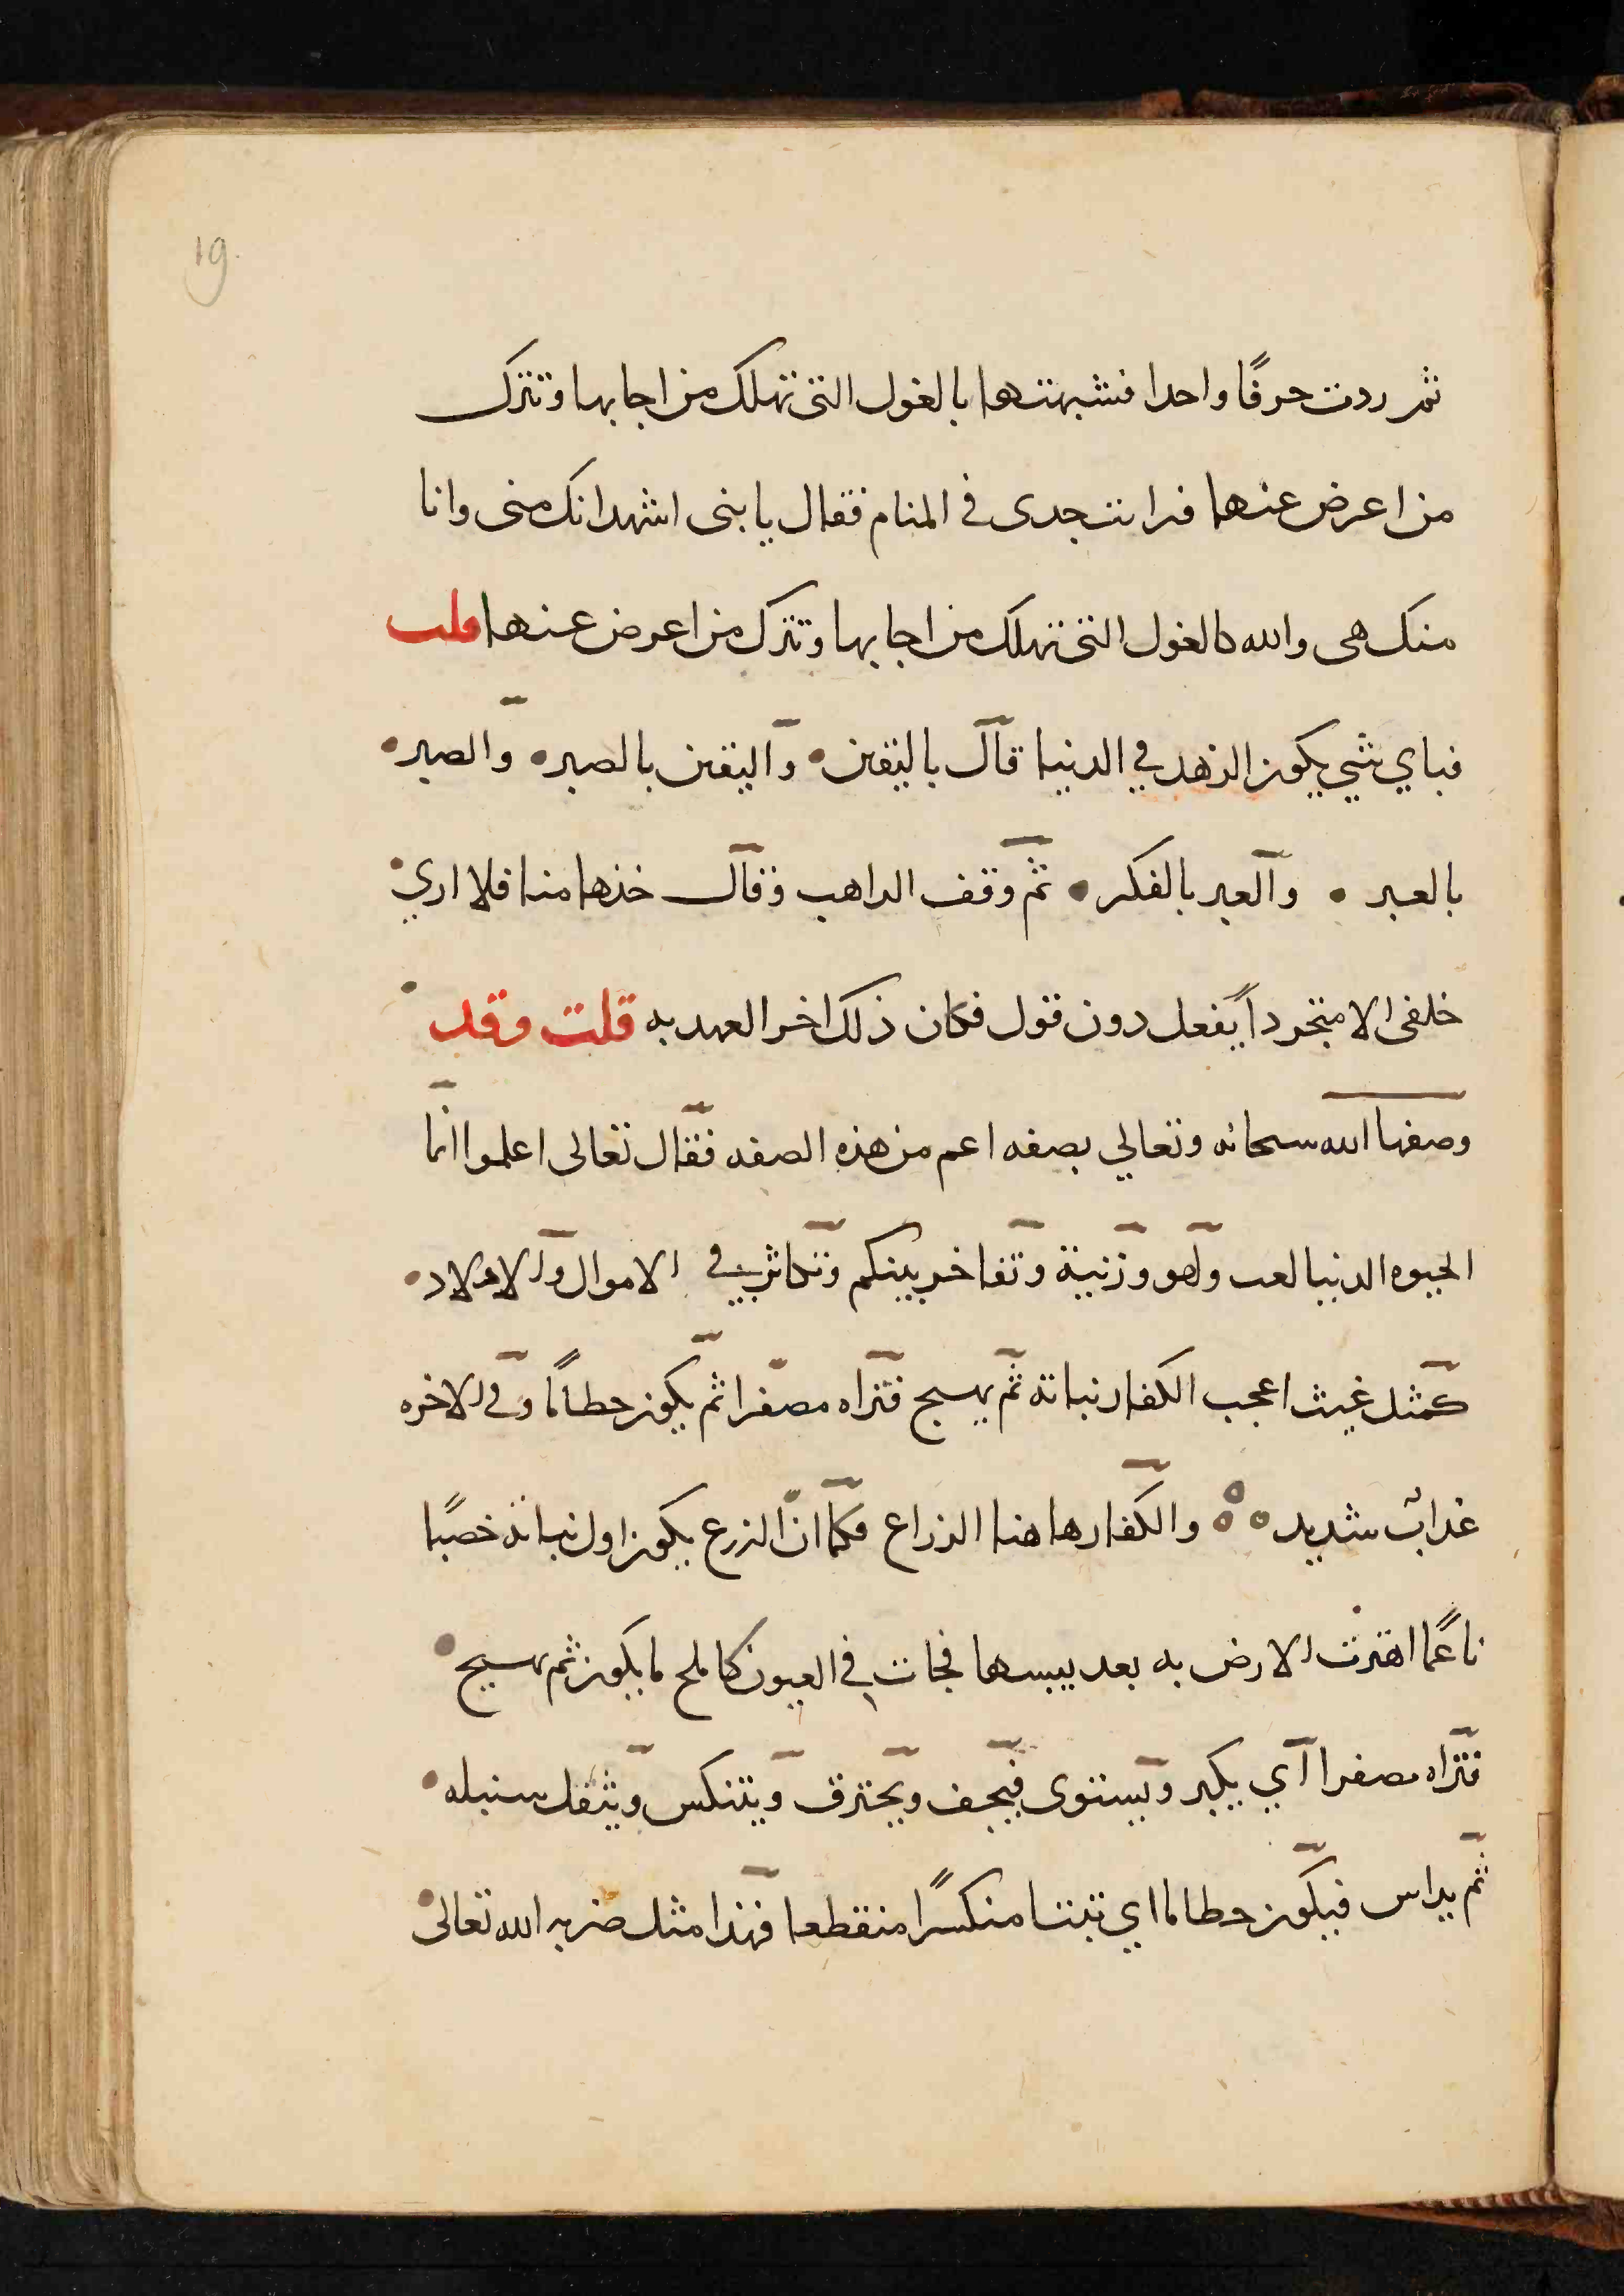 19
ثم رددت حرفًا واحدا فشبهتها بالغول التى تهلك من اجابها وتترك
من اعرض عنها فرايت جدى في المنام فقال يا بنى اشهد انك منى وانا
منك هى والله كالغول التى تهلك من اجابها وتترك من اعرض عنها قلت
فباي شي يكون الزهد في الدنيا قال باليقين • واليقين بالصبر • والصبر •
بالعبر • والعبر بالفكر • ثم وقف الراهب وقال خذها منا فلا اري •
خلفى الا متجردًا بفعل دون قول فكان ذلك اخر العهد به قلت وقد •
وصفها الله سبحانه وتعالي بصفه اعم من هذه الصفه فقال تعالى اعلموا انما
الحيوه الدنيا لعب ولهو وزينة وتفاخر بينكم وتكاثر في الاموال والاولاد •
كمثل غيث اعجب الكفار نباته ثم يهيج فتراه مصفرا ثم يكون حطامًا وفي الاخره
عذابٌ شديد ه ه ه والكفار هاهنا الزراع فكما ان الزرع يكون اول نباته خصبًا
ناعمًا اهتزت الارض به بعد يبسها فجات في العيون كاملح ما يكون ثم يهيج •
فتراه مصفرا اي يكبر ويستوى فيجف ويحترق ويتنكس ويثقل سنبله •
ثم يداس فيكون حطاما اي تبنا منكسرًا منقطعا فهذا مثل ضربه الله تعالى •